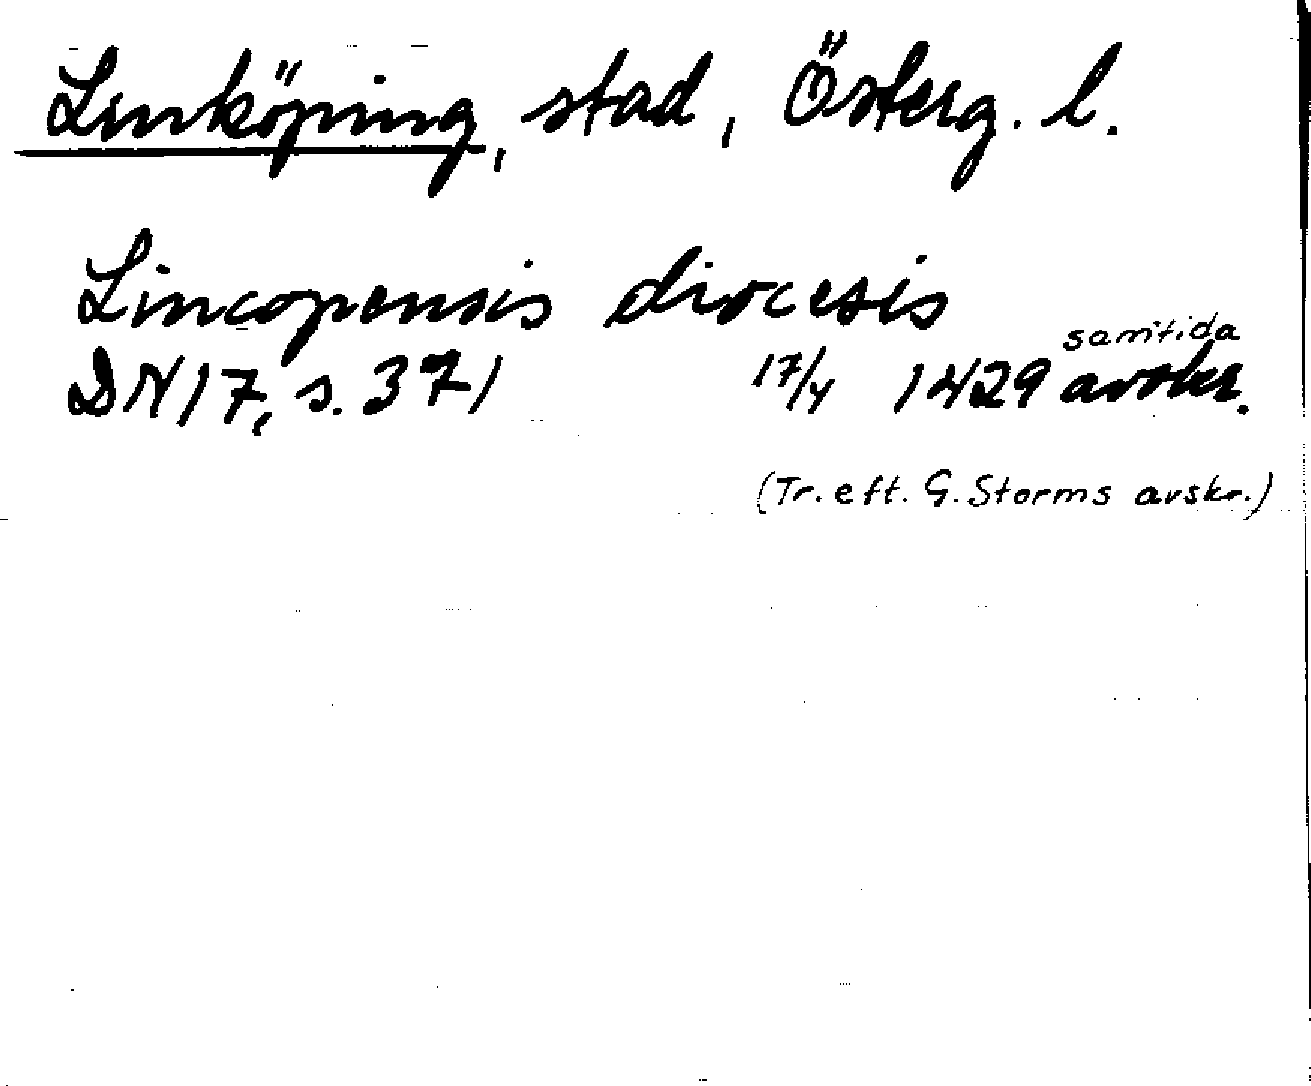 Linköping, stad, Österg. l.
Lincopensis diocesis
DN 17, s. 371 17/4 1429 samtida avskr.
(Tr. eft. G. Storms avskr.)